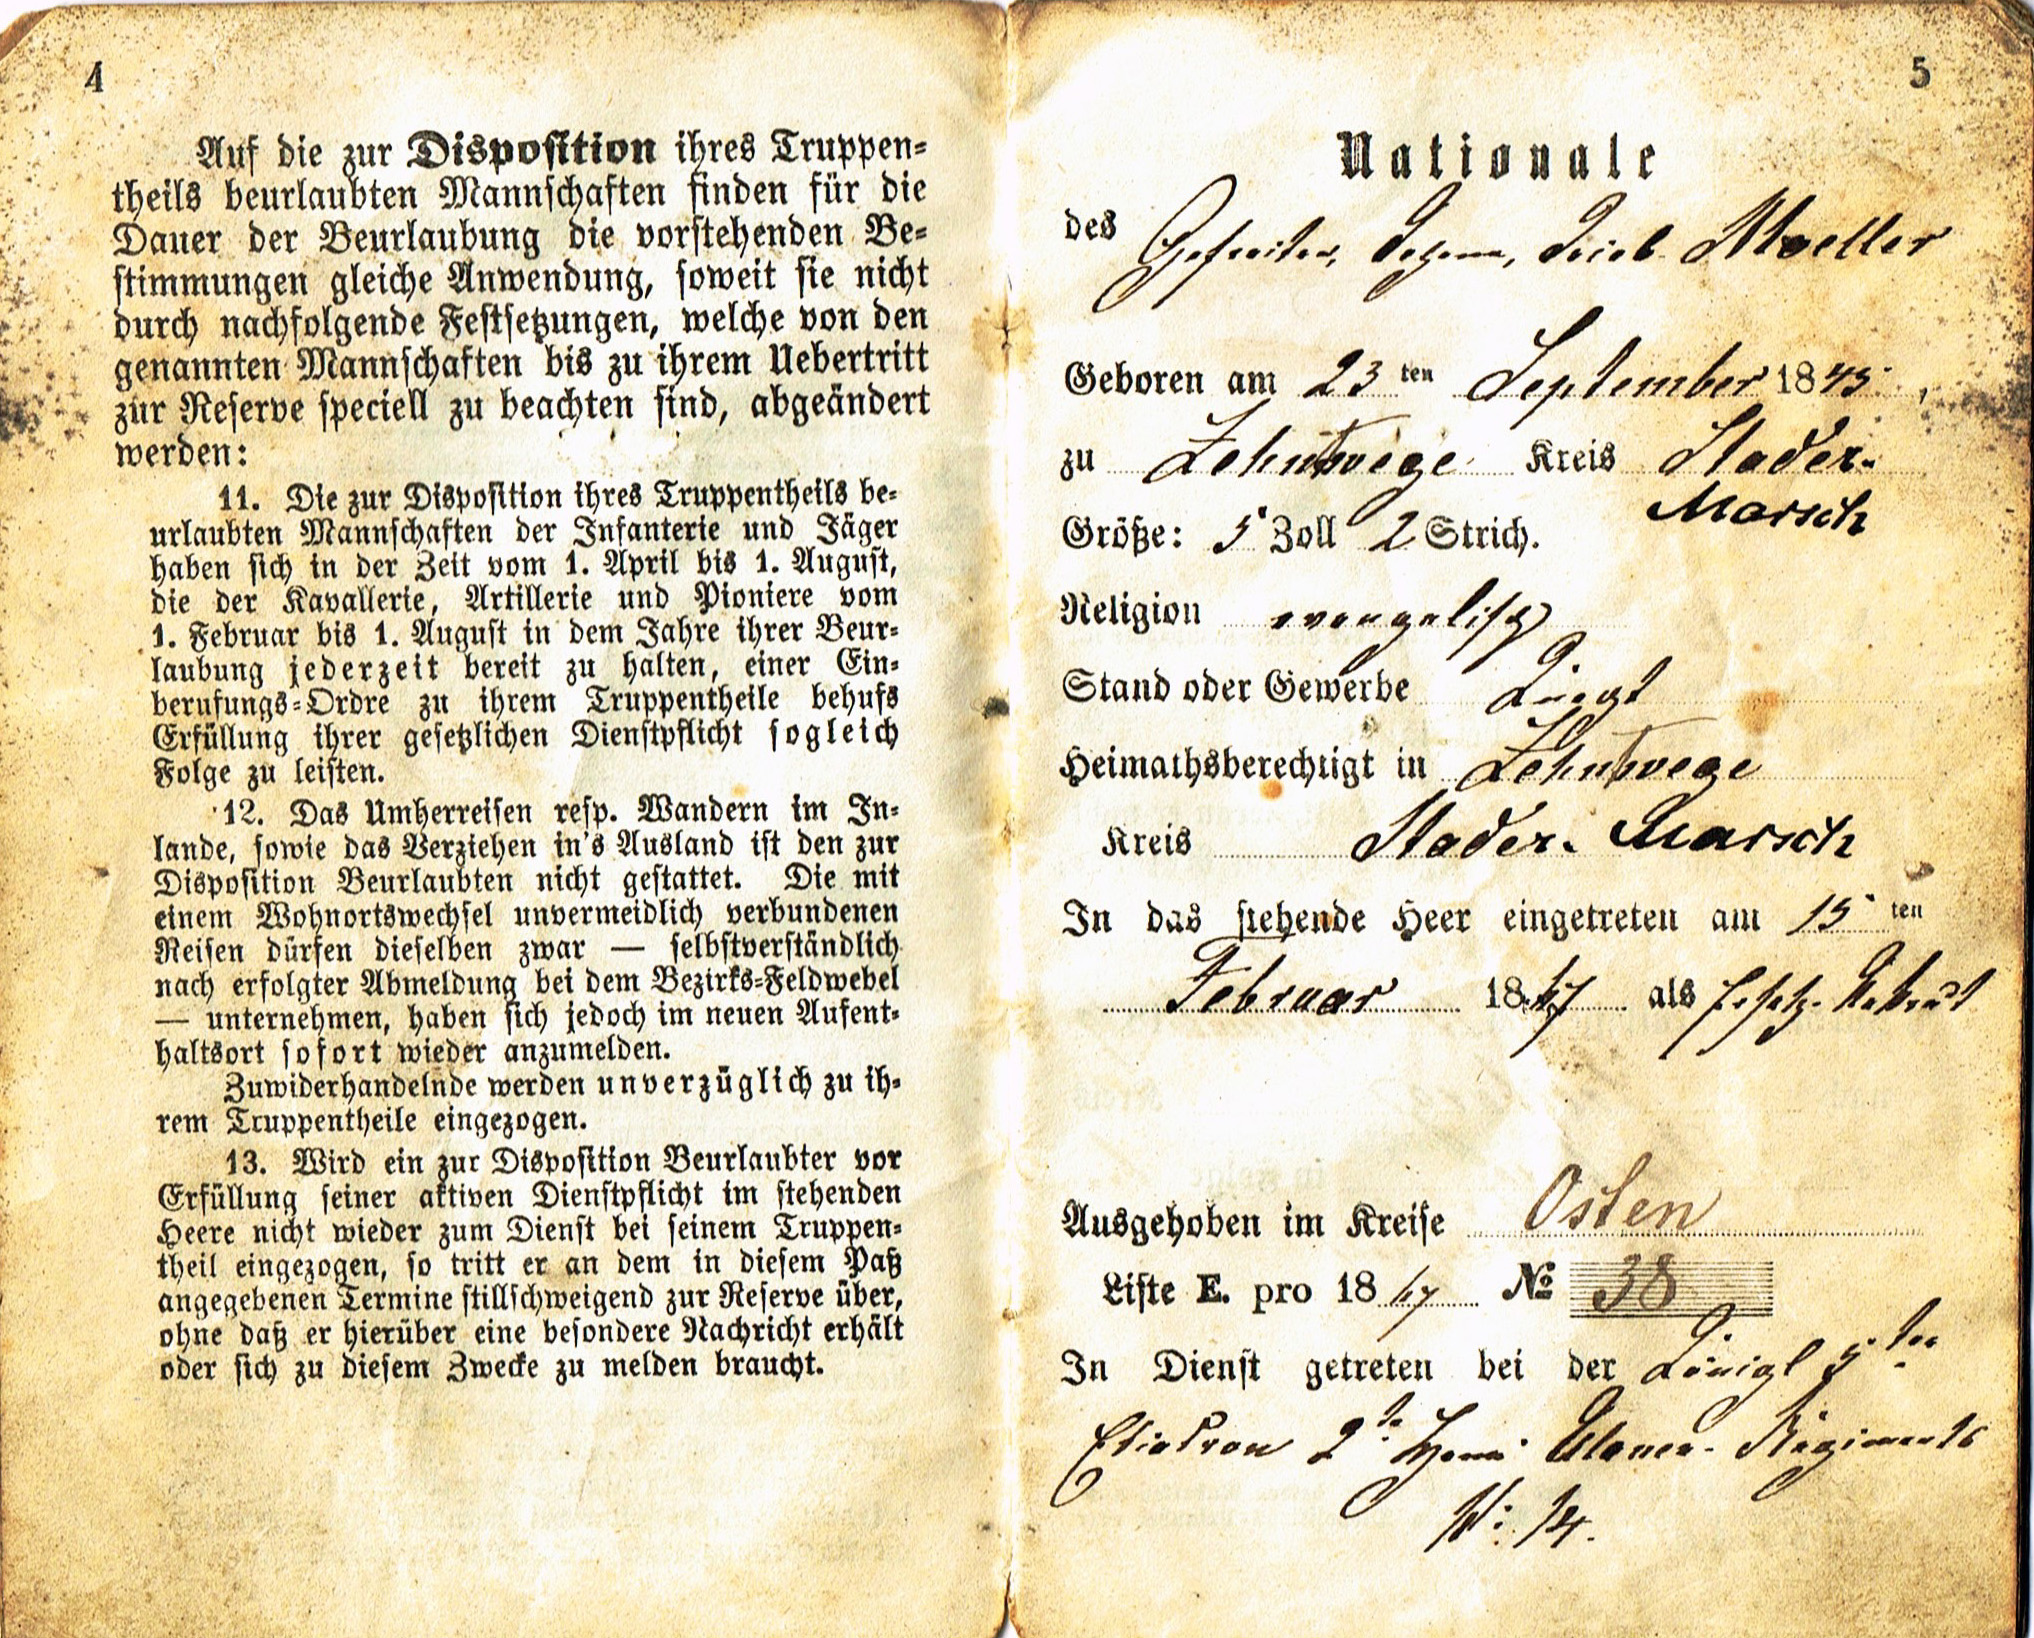 4
Auf die zur Disposition ihres Truppen-
theils beurlaubten Mannschaften finden für die
Dauer der Beurlaubung die vorstehenden Be-
stimmungen gleiche Anwendung, soweit sie nicht
durch nachfolgende Festsetzungen, welche von den
genannten Mannschaften bis zu ihrem Uebertritt
zur Reserve speciell zu beachten sind, abgeändert
werden:
11. Die zur Disposition ihres Truppentheils be-
urlaubten Mannschaften der Infanterie und Jäger
haben sich in der Zeit vom 1. April bis 1. August,
die der Kavallerie, Artillerie und Pioniere vom
1. Februar bis 1. August in dem Jahre ihrer Beur-
laubung jederzeit bereit zu halten, einer Ein-
berufungs-Ordre zu ihrem Truppentheile behufs
Erfüllung ihrer gesetzlichen Dienstpflicht sogleich
Folge zu leisten.
12. Das Umherreisen resp. Wandern im In-
lande, sowie das Verziehen in's Ausland ist den zur
Disposition Beurlaubten nicht gestattet. Die mit
einem Wohnortswechsel unvermeidlich verbundenen
Reisen dürfen dieselben zwar — selbstverständlich
nach erfolgter Abmeldung bei dem Bezirks-Feldwebel
— unternehmen, haben sich jedoch im neuen Aufent-
haltsort sofort wieder anzumelden.
Zuwiderhandelnde werden unverzüglich zu ih-
rem Truppentheile eingezogen.
13. Wird ein zur Disposition Beurlaubter vor
Erfüllung seiner aktiven Dienstpflicht im stehenden
Heere nicht wieder zum Dienst bei seinem Truppen-
theil eingezogen, so tritt er an dem in diesem Paß
angegebenen Termine stillschweigend zur Reserve über,
ohne daß er hierüber eine besondere Nachricht erhält
oder sich zu diesem Zwecke zu melden braucht.
5
Nationale
des Gefreiten, Moeller
Geboren am 23 ten September 1845,
zu Zehntwege Kreis Stader-
Marsch
Größe: 5 Zoll 2 Strich.
Religion evangelisch
Stand oder Gewerbe Knecht
Heimathsberechtigt in Zehntwege
Kreis Stader-Marsch
In das stehende Heer eingetreten am 15 ten
Februar 1867 als Ersatz-Rekrut
Ausgehoben im Kreise Osten
Liste E. pro 1867 No 38
In Dienst getreten bei der Königl 5ten
Eskadron 2t. Hann. Ulanen-Regiments
No. 14.